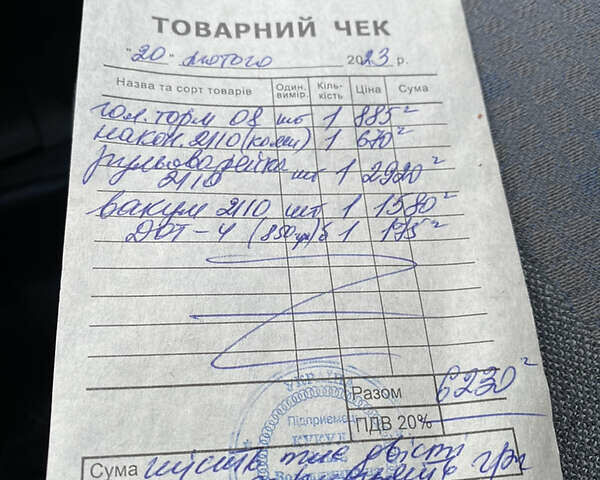 ТОВАРНИЙ ЧЕК
"20" лютого 2023 р.
Назва та сорт товарів Один. вимір. Кіль-кість Ціна Сума
гол. торм 08 шт 1 885г
након. 2110 (комп) 1 670г
рульова рейка
2110 шт 1 2920г
вакум 2110 шт 1 1580г
ДОТ-4 (850гр) б 1 175г
Разом 6230г
УКРАЇН
Підприємец
ПДВ 20%
КУКУ
Сума шість тис двісті
грн